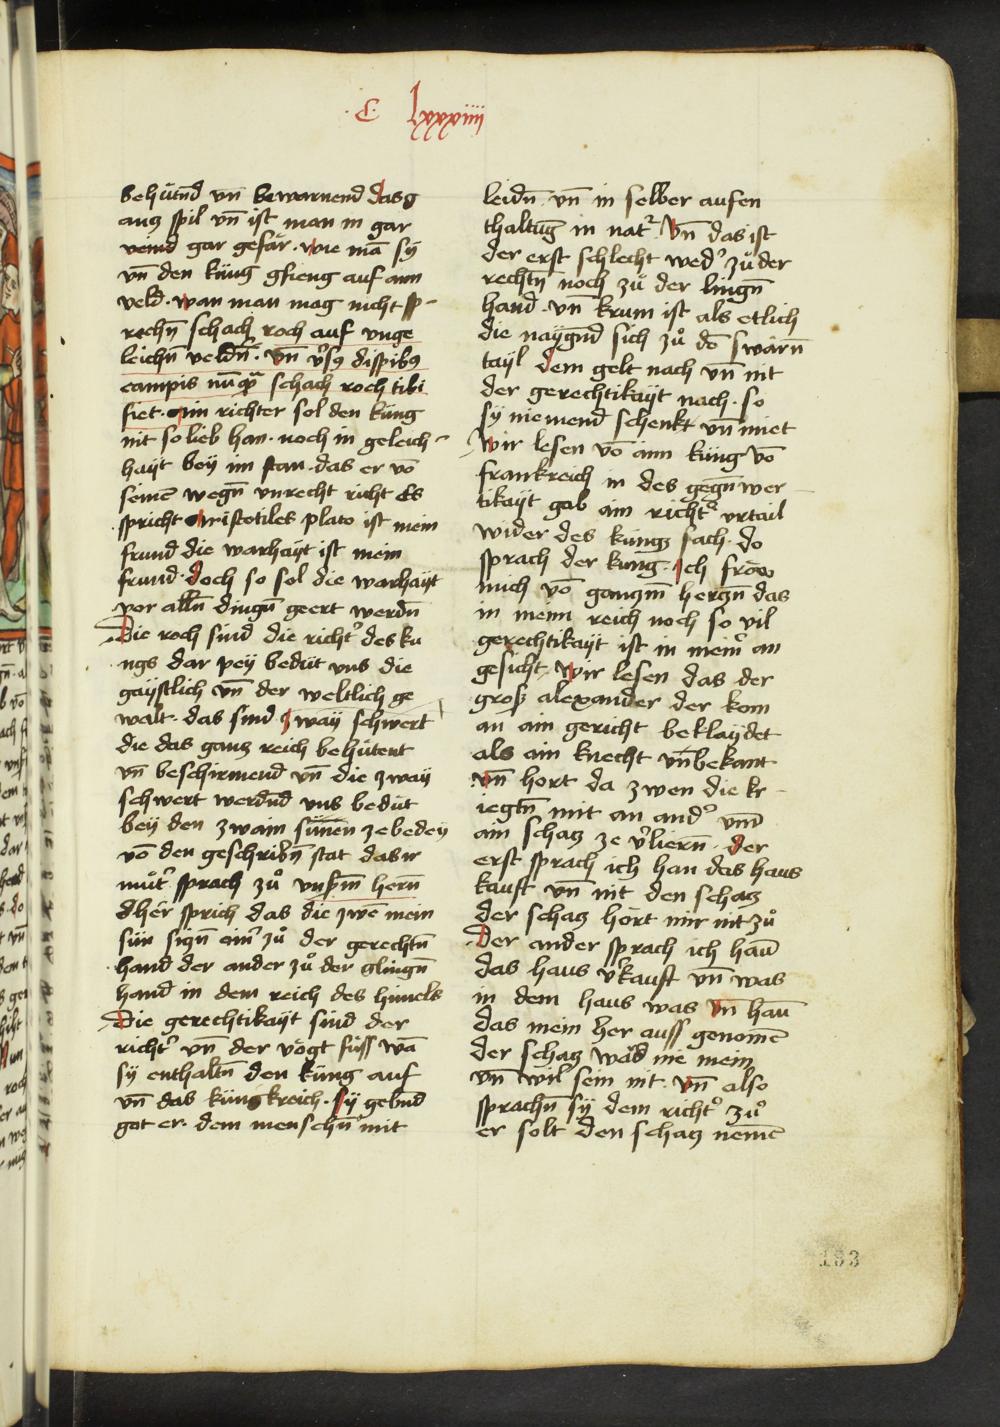 C lxxxiiii
behütnd vn̄ bewarnend das g
ancz spil vn̄ ist man in gar
veind gar gefär. wie mā sÿ
vn̄ den küng gfieng auf ann
veld. wan man mag nicht sp-
rechn̄ schach roch auf vnge
leichn̄ veldn̄. vn̄
campis schach roch tibi
fiet. ain richter sol den küng
nit so lieb han. noch in geleich-
haÿt beÿ im stan. das er vō
seinē wegn̄ vnrecht richt Es
spricht Aristotiles plato ist mein
frund die warhaÿt ist mein
frund. doch so sol die warhaÿt
vor alln̄ dingn̄ geert werdn̄
Die roch sind die richt' des kü
ngs dar peÿ bedüt vns die
gaÿstlich vn̄ der weltlich ge
walt. das sind zwaÿ schwert
die das gancz reich behütent
vn̄ beschirmend vn̄ die zwaÿ
schwert werdn̄d vns bedüt
beÿ den zwain sünen zebedeÿ
vō den geschribn̄ stat das ir
müt' sprach zů vnsm̄ hern̄
dher sprich das die zwē mein
sün sign̄ ain' zů der gerechtn̄
hand der ander zů der glingn̄
hand in dem reich des himels
Die gerechtikaÿt sind der
richt' vn̄ der vögt füss wā
sÿ enthaltn̄ den küng auf
vn̄ das küngkreich. sÿ gebnd
got er. dem menschn̄ mit
leidn̄ vn̄ in selber aufen
thaltūg in nat'. vn̄ das ist
der erst schlecht wed' zů der
rechtn̄ noch zů der lingn̄
hand. vn̄ krum ist als etlich
die naÿgnd sich zů dē swärn̄
taÿl dem gelt nach vn̄ nit
der gerechtikaÿt nach. so
sÿ niemend schenkt vn̄ miet
Wir lesen vō ainn küng vō
frankreich in des gegn̄wer-
tikaÿt gab ain richt' vrtail
wider des küngs sach. do
sprach der küng. Ich fröw
mich vō ganczm̄ herczn̄ das
in meim reich noch so vil
gerechtikaÿt ist in mein' an
gesicht. Wir lesen das der
gros alexander der kom
an ain gericht beklaÿdet
als ain knecht vn̄bekant
vn̄ hort da zwen die kr-
iegtn̄ mit an and' vm̄
ain schacz ze v'liern̄. der
erst sprach ich han das haus
kauft vn̄ nit den schacz
der schacz hört mir nit zů
Der ander sprach ich hān
das haus v'kauft vn̄ was
in dem haus was vn̄ hān
das mein her auss genomē
der schacz ward nie mein
vn̄ wil sein nit. vn̄ also
sprachn̄ sÿ dem richt' zů
er solt den schacz nemē
193